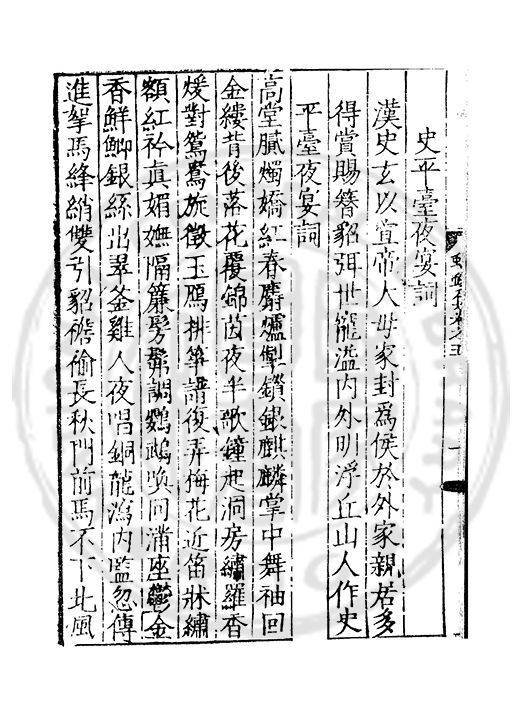 史平臺夜宴詞
漢史玄以宣帝大母家封為侯於外家親居多
得賞賜簪貂弭世寵溢內外明浮丘山人作史
平臺夜宴詞
高堂膩燭嬌紅春麝爐獸鎖銀麒麟掌中舞袖回
金縷背後落花覆錦茵夜半歌鐘起洞房繡羅香
煖對鴛鴦旋徵玉鴈排箏譜復弄梅花近笛牀繡
額紅衿真媚嫵隔簾髣髴調鸚鵡喚回滿座鬱金
香鮮鯽銀絲出翠釜雞人夜唱銅龍瀉內監忽傳
進拏馬絳綃雙引貂襜褕長秋門前馬不下北風